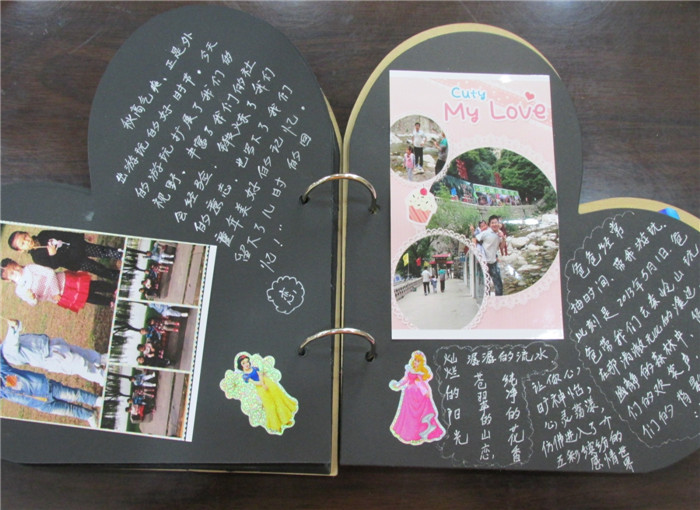 秋高气爽，正是外
出游玩的好时节。今天
的游玩扩展了我们的
视野，丰富了我们的社
会经验，锻炼了我们
的意志，也留下了我们
童年美好的记忆。
留下了儿时的回
忆！..
Cuty
My Love
爸爸经常
抽时间，带我游玩。
此刻是2012年5月1日，爸
爸带我们去秦岭山玩
在那清澈无比的溪边
幽静的森林中
们的欢笑声
们的情
潺潺的流水
灿烂的阳光
苍翠的山峦
纯净的花香
让你心
旷神怡，
心灵荡漾，
仿佛进入了一个
五彩缤纷的
感情世界